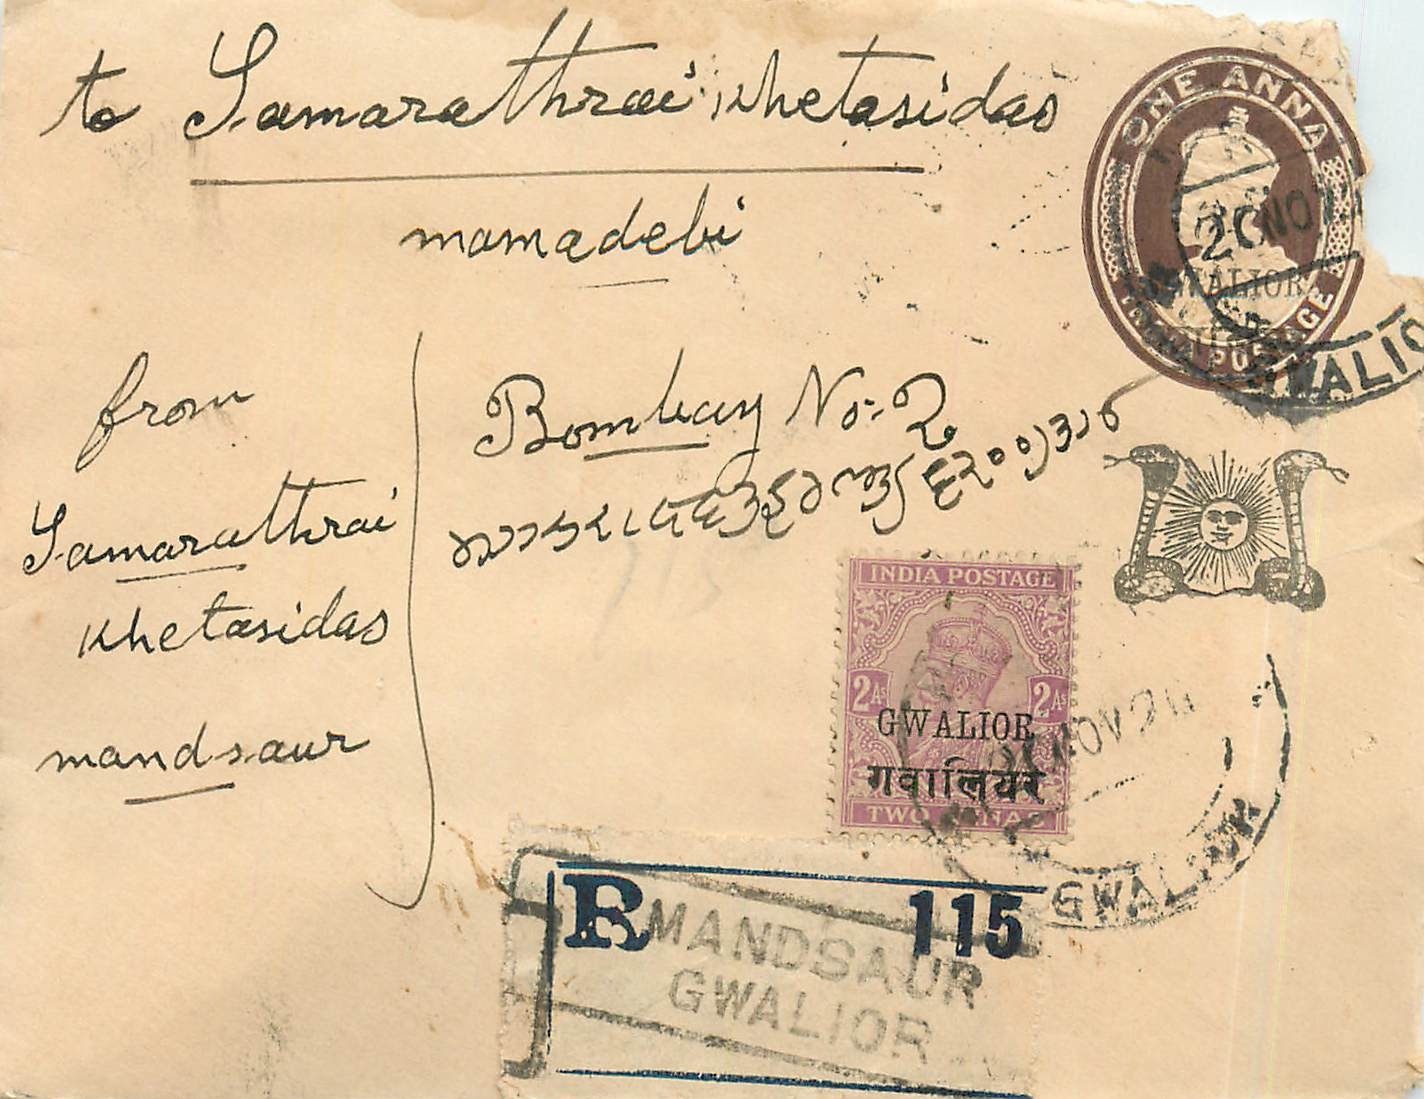 to Samarathrai Khetasidas
mamadebi
Bombay No:- 2
from
Samarathrai
Khetasidas
mandsaur
ONE ANNA
INDIA POSTAGE
GWALIOR
GWALIOR
INDIA POSTAGE
2As 2As
GWALIOR
गवालियर
TWO ANNAS
GWALIOR
R 115
MANDSAUR
GWALIOR